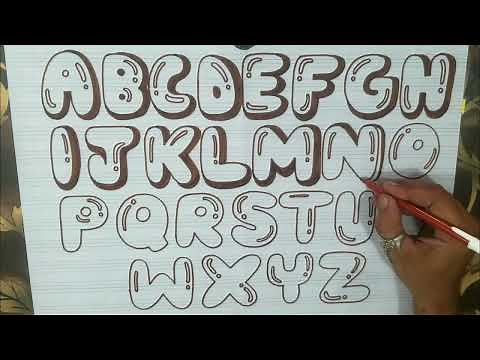 ABCDEFGH
IJKLMNO
PQRSTU
WXYZ